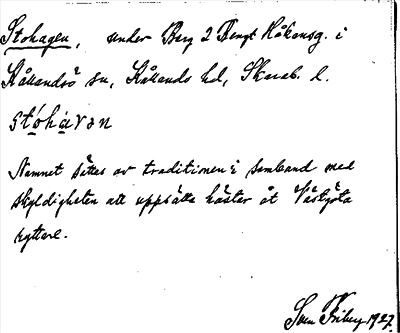 Stohagen, under Berg 2 Bengt Håkansg. i
Kållandsö sn, Kållands hd, Skarab. l.
stohavan
Namnet sättes av traditionen i samband med
skyldigheten att uppsätta hästar åt Västgöta
ryttare.
Sven Friberg 1927.